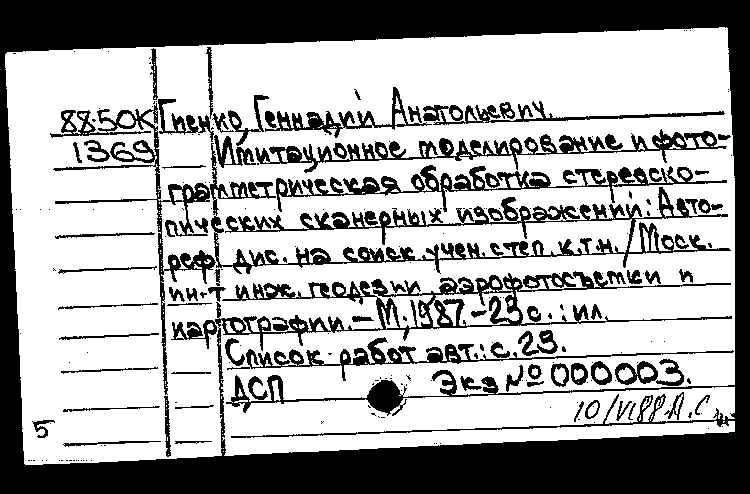 88-50К Гиенко, Геннадий Анатольевич.
1369 Имитационное моделирование и фото-
грамметрическая обработка стереоско-
пических сканерных изображений: Авто-
реф. дис. на соиск. учен. степ. к.т.н. / Моск.
ин-т инж. геодезии, аэрофотосъемки и
картографии. - М., 1987. - 23 с. : ил.
Список работ авт.: с. 23.
ДСП Экз № 000003.
10/VI88 А. С
5